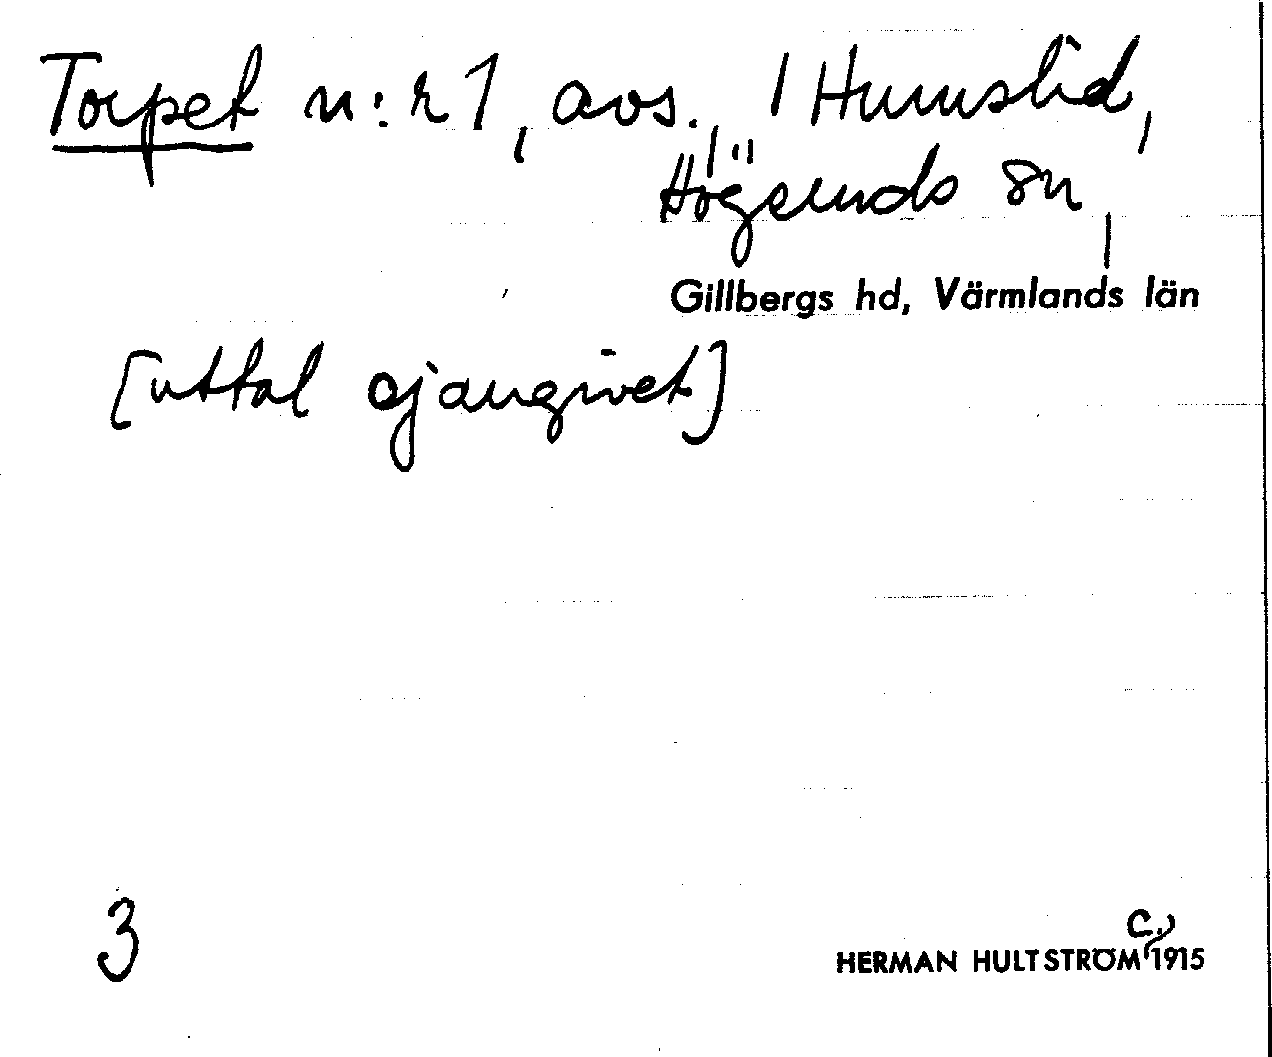 Torpet n:r 1, avs., 1 Humslid,
Högeruds sn,
Gillbergs hd, Värmlands län
[uttal ej angivet]
3
HERMAN HULTSTRÖM c. 1915